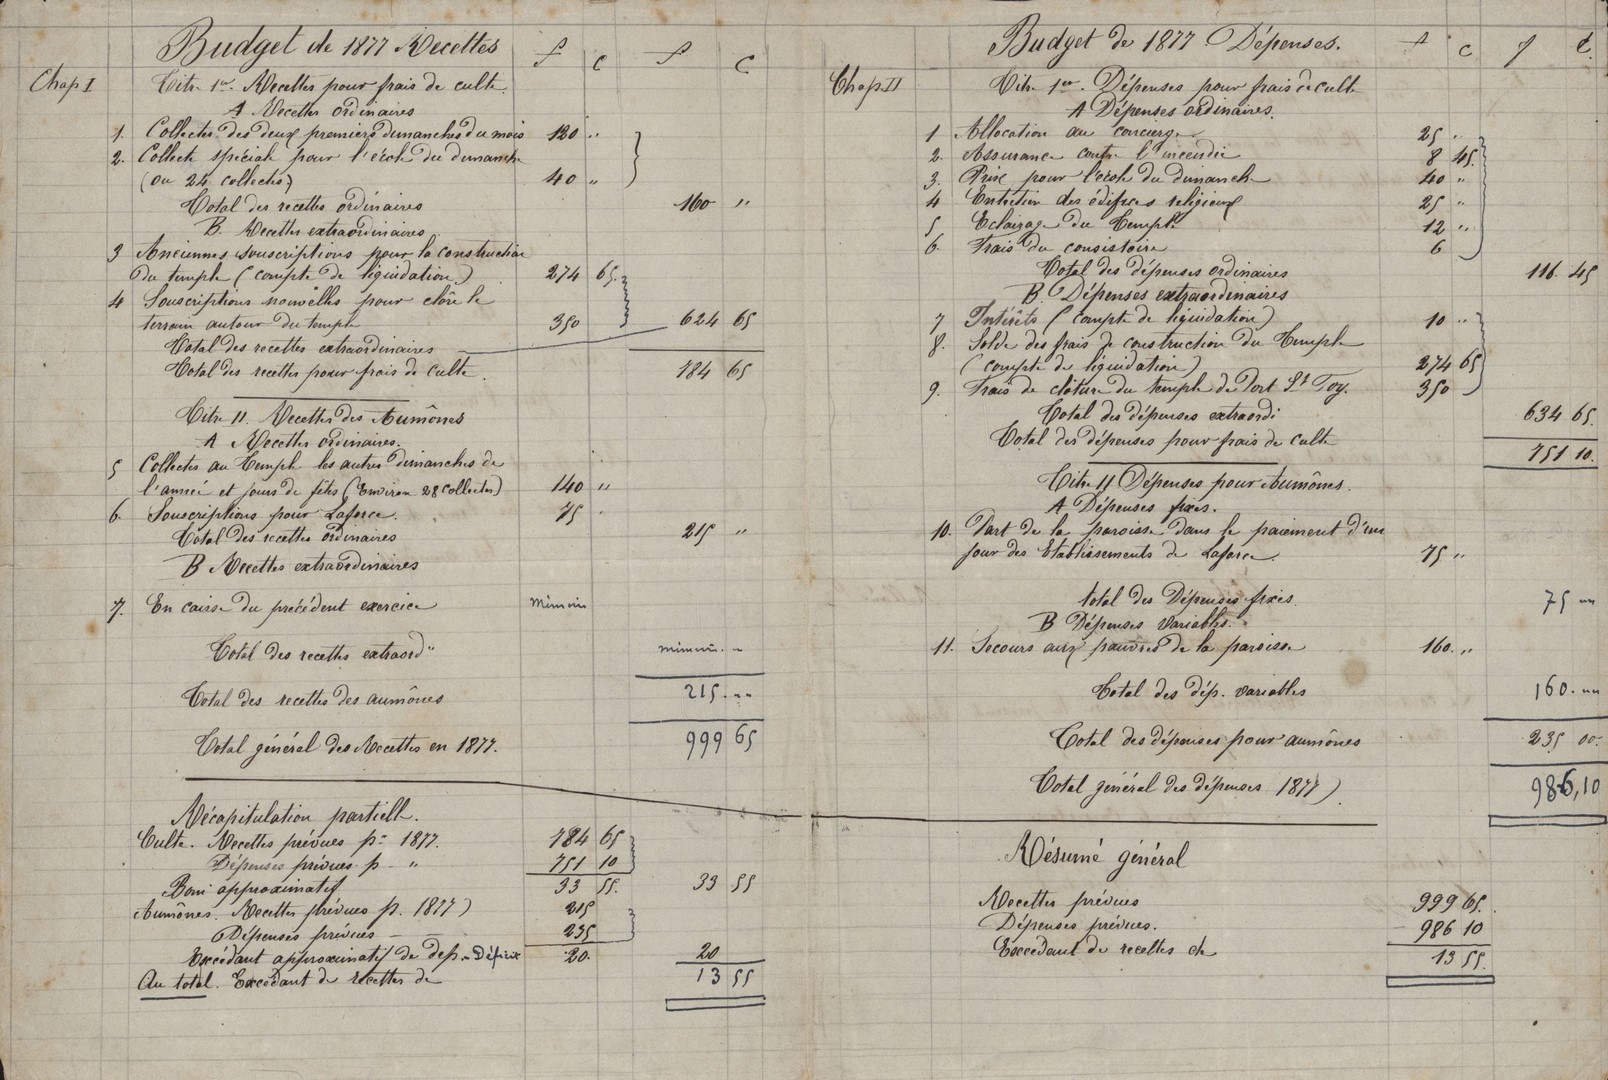 Budget de 1877 Recettes f c f c
Chap I Titre 1er. Recettes pour frais de culte.
A Recettes ordinaires
1. Collectes des deux premiers dimanches du mois 120 "
2. Collecte spéciale pour l'école du dimanche
(ou 24 collectes) 40 "
Total des recettes ordinaires 160 "
B. Recettes extraordinaires
3 Anciennes souscriptions pour la construction
du temple (compte de liquidation) 274 65.
4 Souscriptions nouvelles pour clôre le
terrain autour du temple 350 624 65
Total des recettes extraordinaires
Total des recettes pour frais de culte. 784 65
Titre II. Recettes des Aumônes
A Recettes ordinaires.
5 Collectes au Temple les autres dimanches de
l'année et jours de fêtes (Environ 28 collectes) 140 "
6. Souscriptions pour Laforce. 75 "
Total des recettes ordinaires 215 "
B Recettes extraordinaires
7. En caisse du précédent exercice Mémoire
Total des recettes extraord" mémoire. "
Total des recettes des aumônes 215. ""
Total général des Recettes en 1877. 999 65
Récapitulation partielle.
Culte. Recettes prévues pr 1877. 784 65
Dépenses prévues p - " 751 10
Boni approximatif 33 55. 33 55
Aumônes. Recettes prévues p. 1877) 215
Dépenses prévues - 235
Excédant approximatif de dep. - Déficit 20. 20
Au total. Excédant de recettes de 13 55
Budget de 1877 Dépenses. f c f c.
Chap II Titre 1er. Dépenses pour frais de culte
A Dépenses ordinaires.
1 Allocation au concierge 25 "
2. Assurance contre l'incendie 8 45.
3. Prix pour l'école du dimanche 40 "
4 Entretien des édifices religieux 25 "
5 Eclairage du Temple 12 "
6. Frais du consistoire 6
Total des dépenses ordinaires 116. 45
B. Dépenses extraordinaires
7 Intérêts (compte de liquidation) 10 "
8. Solde des frais de construction du Temple
(compte de liquidation) 274 65
9. Frais de clôture du temple de Port Ste Foy. 350
Total des dépenses extraordi 634 65.
Total des dépenses pour frais de culte 751 10.
Titre II Dépenses pour Aumônes.
A Dépenses fixes.
10. Part de la paroisse dans le paiement d'un
jour des Etablissements de Laforce. 75 "
total des Dépenses fixes. 75 ""
B Dépenses variables.
11. Secours aux pauvres de la paroisse 160. "
Total des dép. variables 160. ""
Total des dépenses pour aumônes 235 00.
Total général des dépenses 1877) 986,10
Résumé général
Recettes prévues 999 65.
Dépenses prévues. 986 10
Excédant de recettes de 13 55.